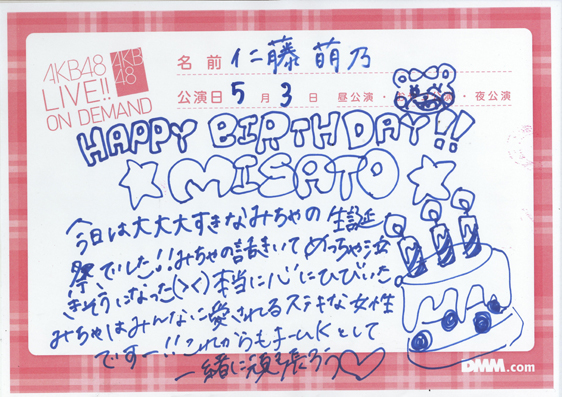 AKB48
LIVE!!
ON DEMAND
AKB
48
名前 仁藤萌乃
公演日 5月3日 昼公演・ ・夜公演
HAPPY BIRTHDAY!!
☆MISATO☆
今日は大大大すきなみちゃの生誕
祭でした!!みちゃの話きいてめっちゃ泣
きそうになった(><)本当に心にひびいた
みちゃはみんなに愛されるステキな女性
ですー!!これからもチームKとして
一緒に頑張ろう♡
DMM.com